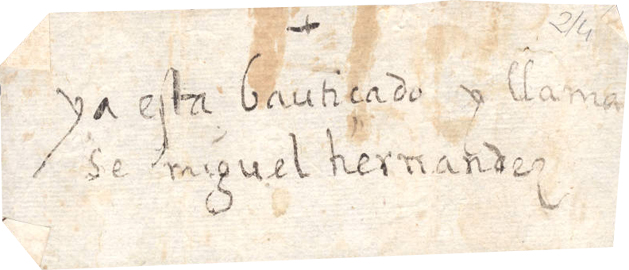 +
2/4
ya esta bauticado y llama
se miguel hernandez